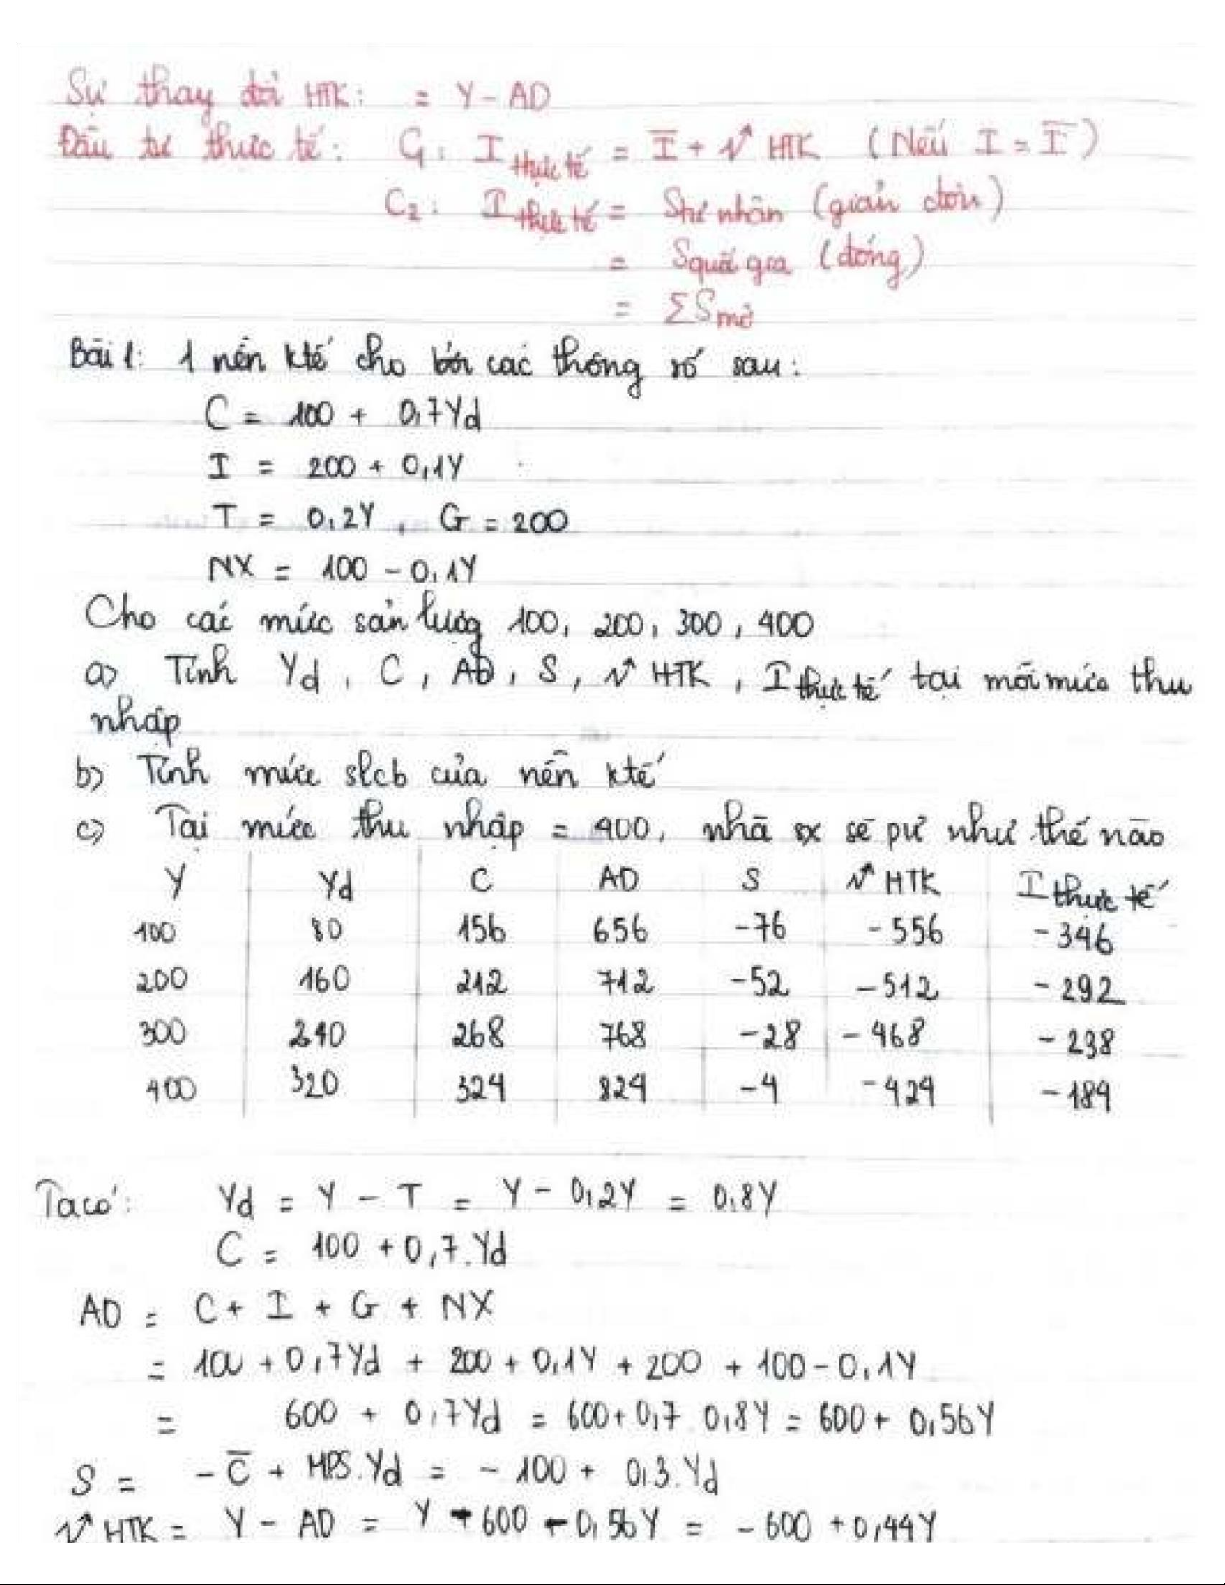 Sự thay đổi HTK: = Y - AD
Đầu tư thực tế: C1: I thực tế = I̅ + ↗ HTK (Nếu I = I̅)
C2: I thực tế = Stư nhân (giản đơn)
= Squốc gia (đóng)
= ΣSmở
Bài 1: 1 nền ktế cho bởi các thông số sau:
C = 100 + 0,7Yd
I = 200 + 0,1Y
T = 0,2Y, G = 200
NX = 100 - 0,1Y
Cho các mức sản lượng 100, 200, 300, 400
a) Tính Yd, C, AD, S, ↗ HTK, I thực tế tại mỗi mức thu
nhập
b) Tính mức slcb của nền ktế
c) Tại mức thu nhập = 400, nhà sx sẽ pư như thế nào
Y Yd C AD S ↗ HTK I thực tế
100 80 156 656 -76 -556 -346
200 160 212 712 -52 -512 -292
300 240 268 768 -28 -468 -238
400 320 324 824 -4 -424 -184
Ta có: Yd = Y - T = Y - 0,2Y = 0,8Y
C = 100 + 0,7.Yd
AD = C + I + G + NX
= 100 + 0,7Yd + 200 + 0,1Y + 200 + 100 - 0,1Y
= 600 + 0,7Yd = 600 + 0,7.0,8Y = 600 + 0,56Y
S = -C̅ + MPS.Yd = -100 + 0,3.Yd
↗ HTK = Y - AD = Y - 600 - 0,56Y = -600 + 0,44Y